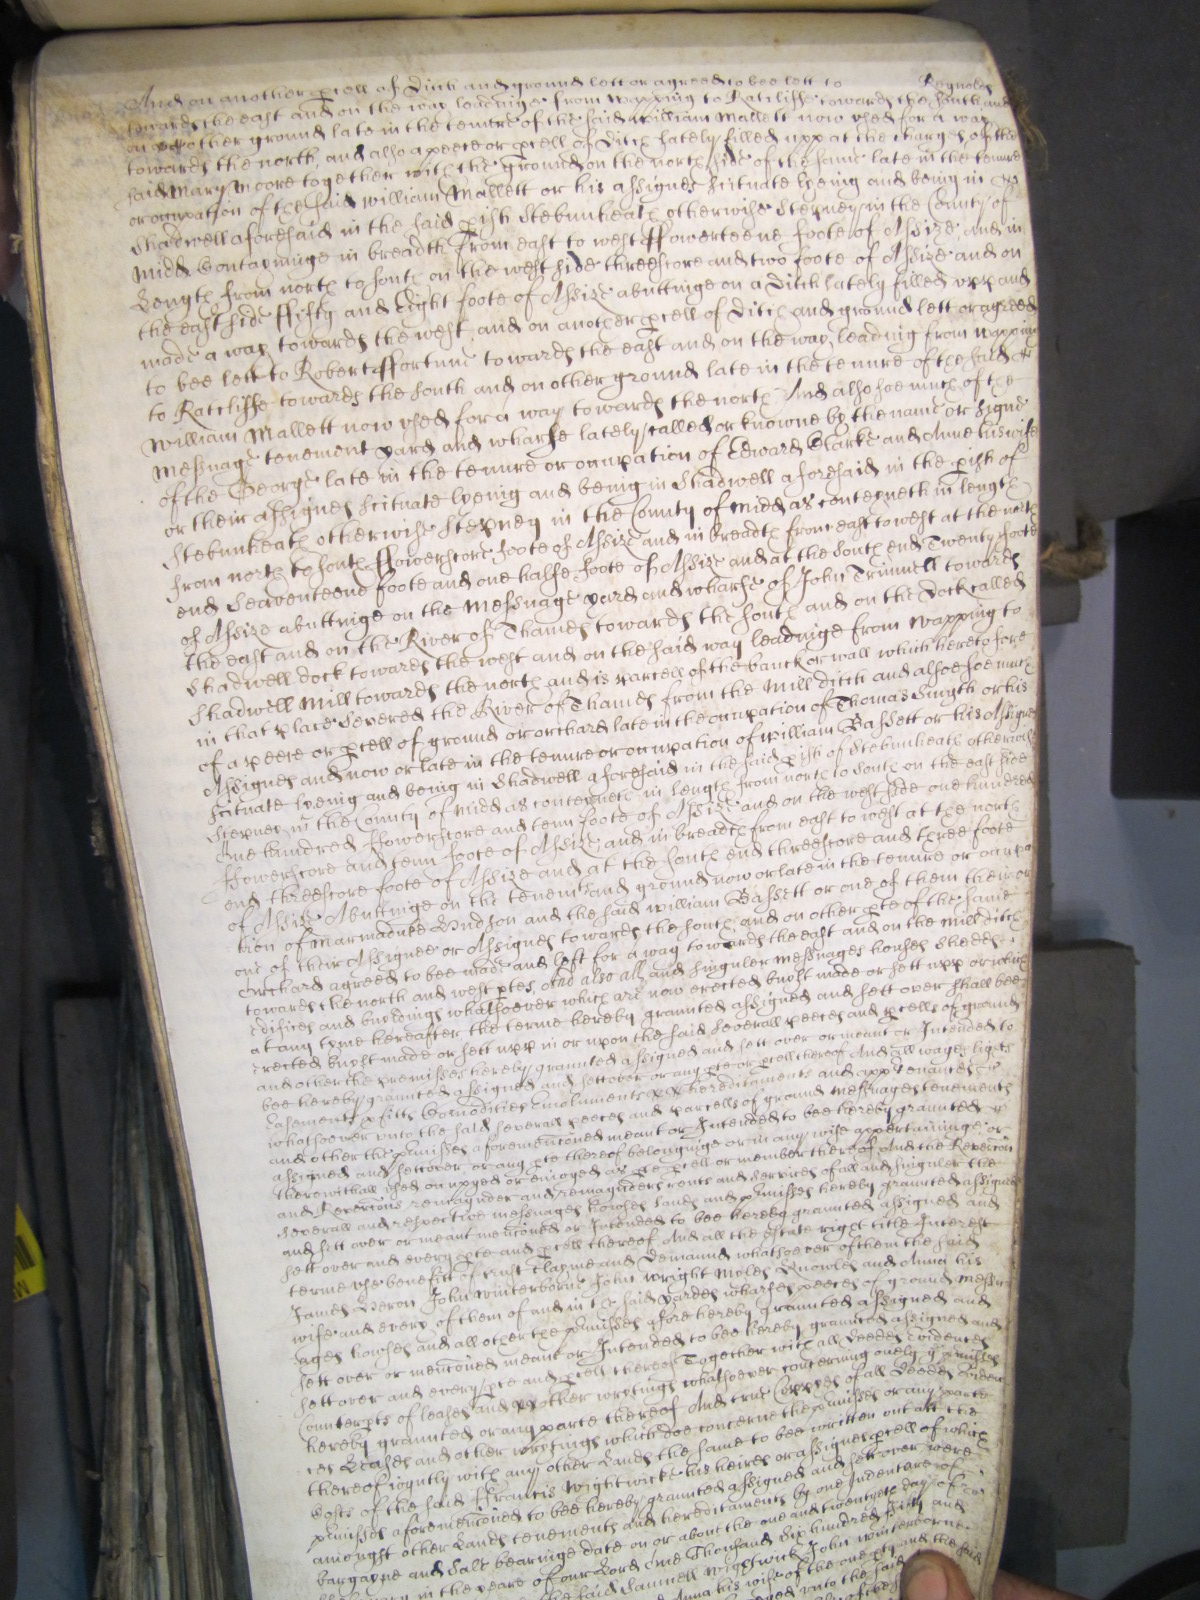 And on another pcell of Ditch and ground lett or agreed to bee lett to Reynolds
towards the east and on the way leadinge from Wapping to Ratcliffe towards the South and
on other ground late in the tenure of the said William Mallett now used for a way
towards the north, and also a peece or pcell of Ditch lately filled upp at the charges of the
said Mary Moore together with the ground on the north side of the same late in the tenure
or occupation of the said William Mallett or his assignes scituate lyeing and being in
Shadwell aforesaid in the said pish Stebunheath otherwise Stepney in the County of
Midd Contayninge in breadth from east to west ffowerteene foote of Assize and in
Length from north to south on the west side threescore and two foote of Assize and on
the east side ffifty and Eight foote of Assize abuttinge on a Ditch lately filled upp and
made a way towards the west, and on another pcell of Ditch and ground lett or agreed
to bee lett to Robert ffortune towards the east and on the way leading from Wappin
to Ratcliffe towards the South and on other ground late in the tenure of the said
William Mallett now used for a way towards the north And also soe much of the
Messuage tenement yard and wharfe lately called or knowne by the name or signe
of the George late in the tenure or occupation of Edward Clarke and Anne his wife
or their assignes scituate lyeing and being in Shadwell aforesaid in the pish of
Stebunheath otherwise Stepney in the County of Midd as conteyneth in length
from north to south ffowerscore foote of Assize and in breadth from east to west at the north
end Seaventeene foote and one halfe foote of Assize and at the South end Twenty foote
of Assize abuttinge on the Messuage yard and wharfe of John Trinnell towards
the east and on the River of Thames towards the South and on the Dock called
Shadwell dock towards the west and on the said way leadinge from Wapping to
Shadwell Mill towards the north and is parcell of the banck or wall which heretofore
in that place Severed the River of Thames from the Mill ditch and also soe much
of a peece or pcell of ground or orchard late in the occupation of Thomas Smyth or his
Assignes and now or late in the tenure or occupation of William Bassett or his Assignes
scituate lyeing and being in Shadwell aforesaid in the said pish of Stebunheath otherwise
Stepney in the County of Midd as conteyneth in length from north to South on the east side
One hundred ffowerscore and tenn foote of Assize and on the west side one hundred
ffowerscore and tenn foote of Assize and in breadth from east to west at the north
end threescore foote of Assize and at the south end threescore and three foote
of Assize Abuttinge on the tenemts and ground now or late in the tenure or occupa
tion of Marmaduke Hudson and the said William Bassett or one of them their or
one of their Assignee or Assignes towards the South and on other pte of the same
Orchard agreed to bee made and left for a way towards the east and on the Mill ditch
towards the north and west ptes, And also all and singuler Messuages houses Shedds
Edifices and buildings whatsoever which are now erected built made or sett upp or which
at any tyme hereafter the terme hereby graunted assigned and sett over shall bee
erected buylt made or sett upp in or upon the said Severall peeces and pcells of ground
and other the premisses hereby graunted assigned and sett over or meant or Intended to
bee hereby graunted assigned and sett over or any pte or pcell thereof And all wayes lights
easements pfitts Comodities emoluments hereditaments and appurtenances
whatsoever unto the said severall peeces and parcells of ground Messuages tenements
and other the pmisses aforementioned meant or Intended to bee hereby graunted
assigned and sett over or any pte thereof belonginge or in any wise appertaininge or
therewithall used occupyed or enioyed as pte pcell or member thereof And the Revercon
and Revercons remaynder and remaynders rents and services of all and singuler the
Severall and respective messuages howses lands and pmisses hereby graunted assigned
and sett over or meant mencioned or Intended to bee hereby graunted assigned and
sett over and every pte and pcell thereof And all the Estate right title Interest
terme use benefitt of trust Clayme and Demaund whatsoever of them the said
James Heron John Winterborne John Wright Moses Knowles and Anna his
wife and every of them of and in the said yardes wharfes peeces of ground Messu
ages howses and all other the pmisses afore hereby graunted assigned and
sett over or mencioned meant or Intended to bee hereby graunted assigned and
sett over and every pte and pcell thereof Together with all Deedes Evidences
Counterpts of leases and other wrytings whatsoever concerning onely ye pmisses
hereby graunted or any parte thereof And true Coppyes of all Deedes Eviden
ces Leases and other wrytings which doe concerne the pmisses or any parte
thereof ioyntly with any other Lands the same to bee written out att the
Costs of the said ffrancis Wightwick his heires or assignes pcell of which
pmisses aforemencioned to bee hereby graunted assigned and sett over were
amongst other Lands tenements and hereditaments by one Indenture of
bargayne and Sale bearinge date on or about the one and twentyeth day of
in the yeare of our Lord One Thousand Six hundred fifty and
the said Samuell Wightwick John Winterborne
Anna his wife of the one pty and the said
unto the said